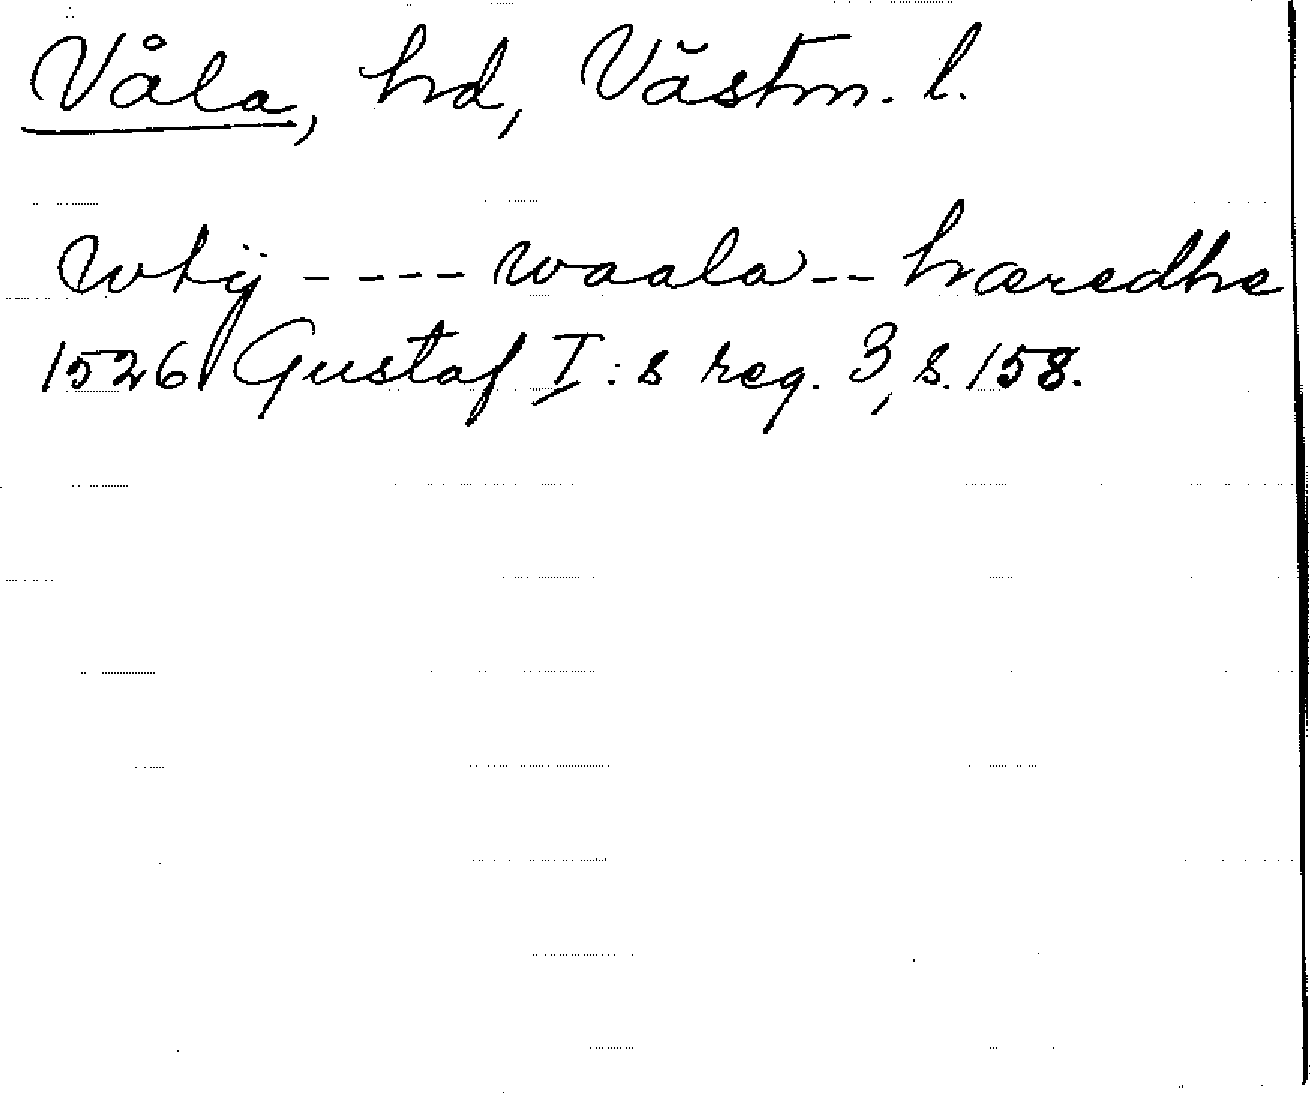 Våla, hd, Västm. l.
wtij ---- waala -- hæredhe
1526 Gustaf I:s reg. 3, s. 158.